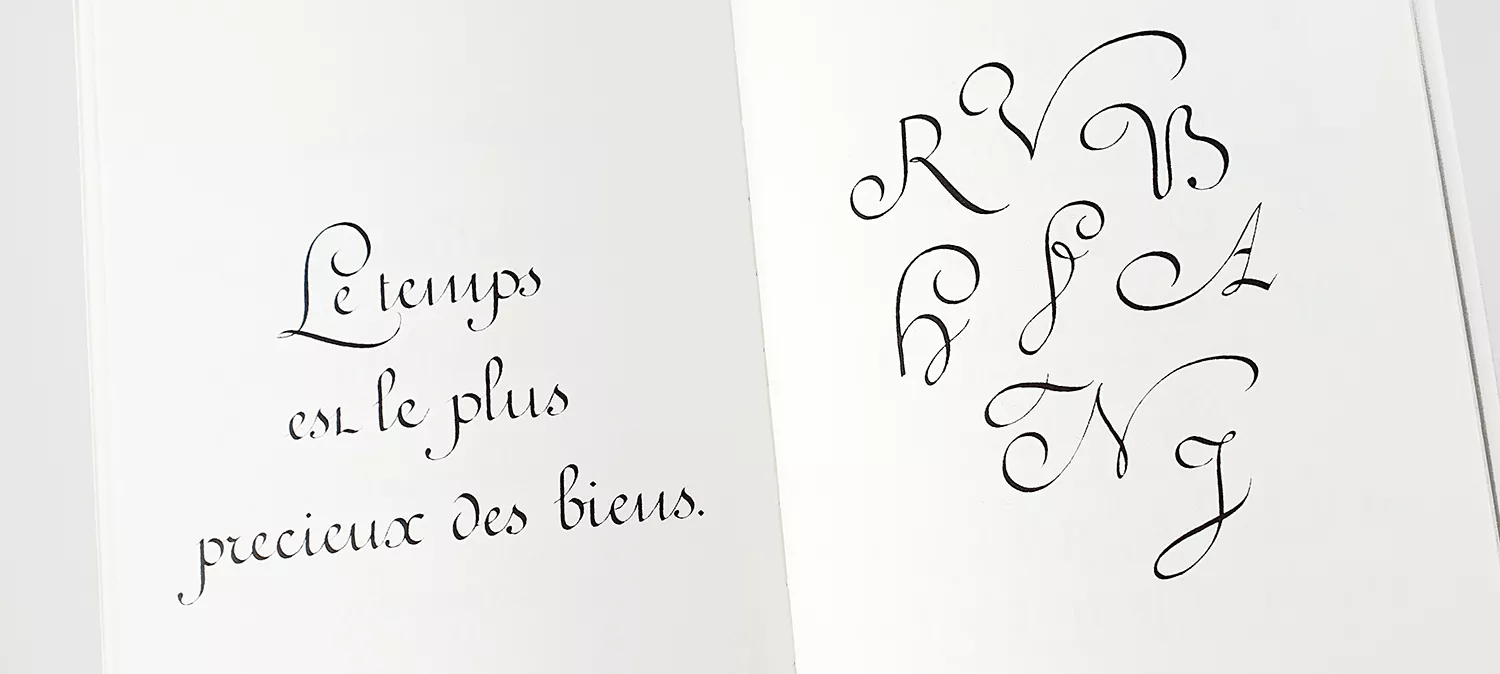 Le temps
est le plus
precieux des biens.
R V B
H f A
N J